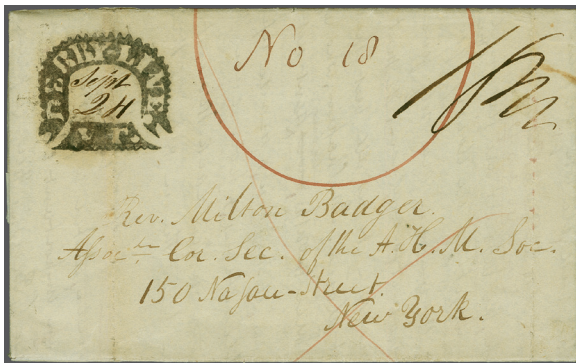 DERBY LINE
Sept
24
VT.
No 18
Rev. Milton Badger.
Assoc.te Cor. Sec. of the A. H. M. Soc.
150 Nassau-Street.
New York.